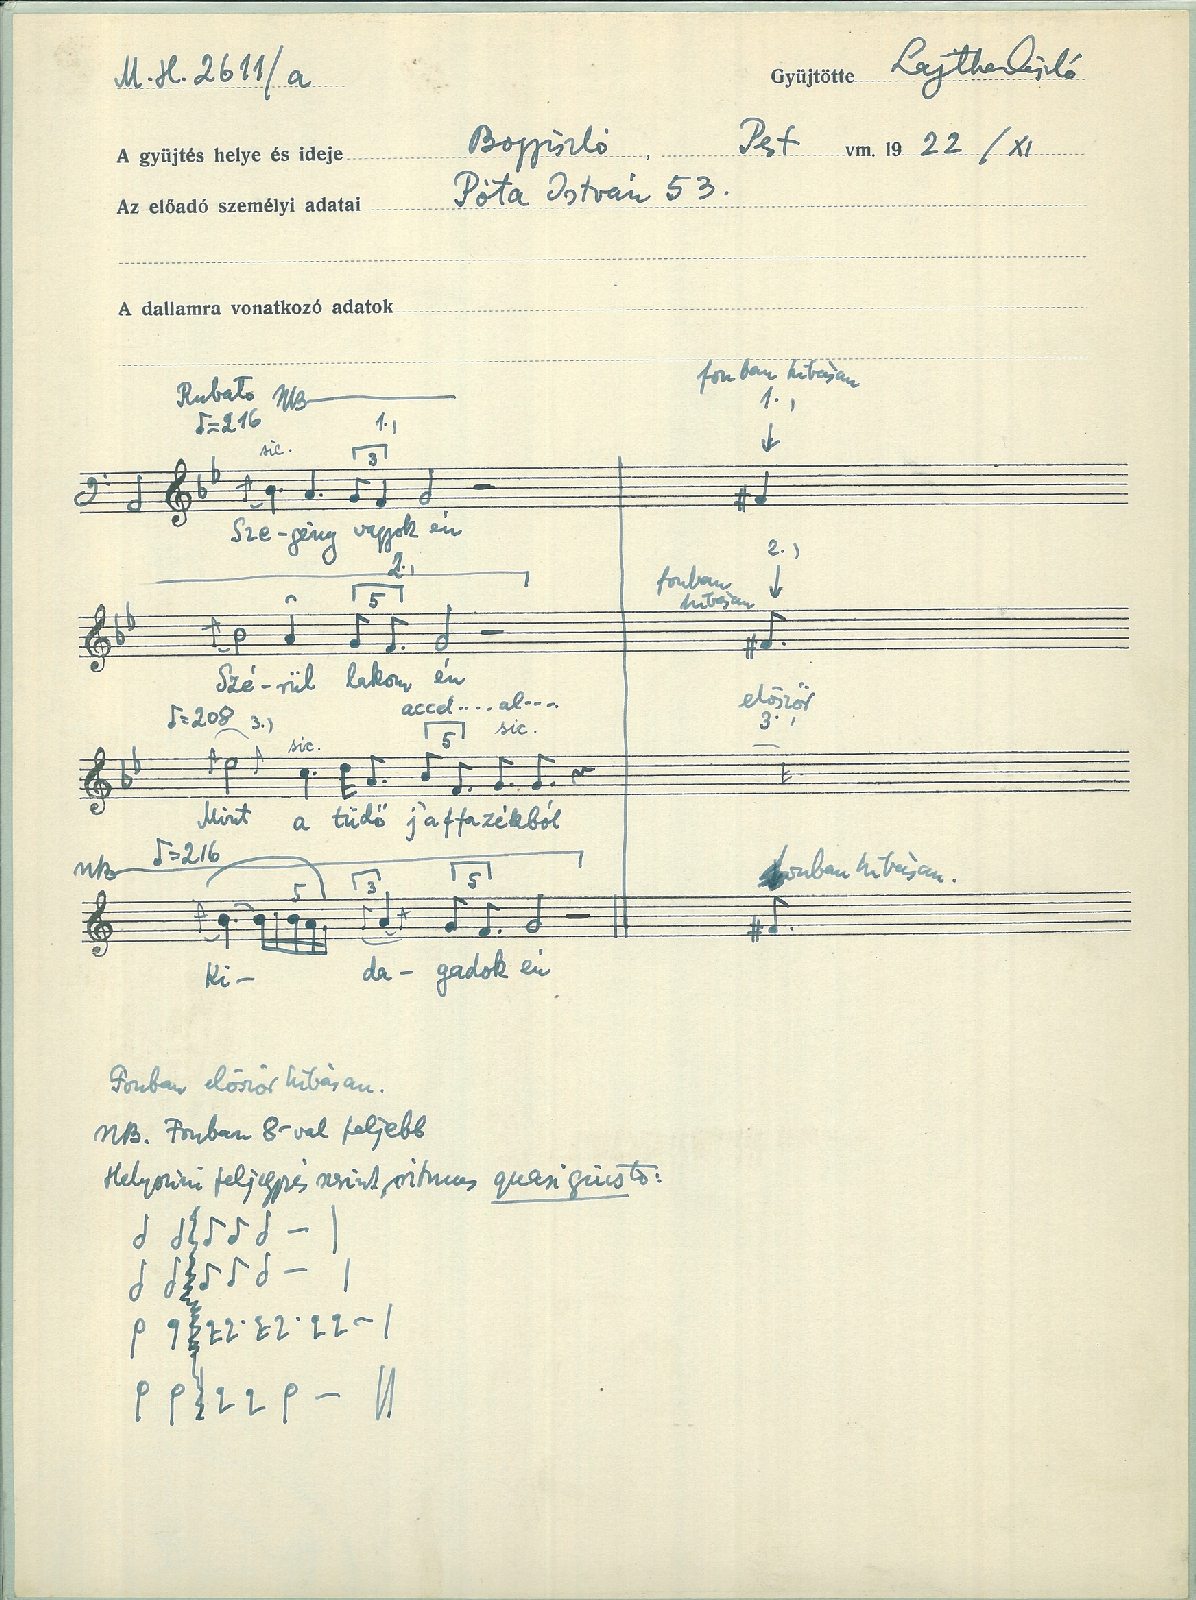 M.H. 2611/a
Gyüjtötte Lajtha László
A gyüjtés helye és ideje Bogyiszló, Pest vm. 1922/XI
Az előadó személyi adatai Póta István 53.
A dallamra vonatkozó adatok
fonban hibásan
Rubato NB
1.,
♪=216
1.,
sic.
3
Sze-gény vagyok én
2.,
2.,
fonban
hibásan
5
Szé-rül lakom én
accel.....al....
először
♪=208 3.,
3.,
sic.
5
sic.
Mint a tüdő
♪=216
NB
fonban hibásan.
5
3
5
Ki- da- gadok én
Fonban először hibásan.
NB. Fonban 8-val feljebb
Helyszini feljegyzés szerint ritmus quasi giusto: